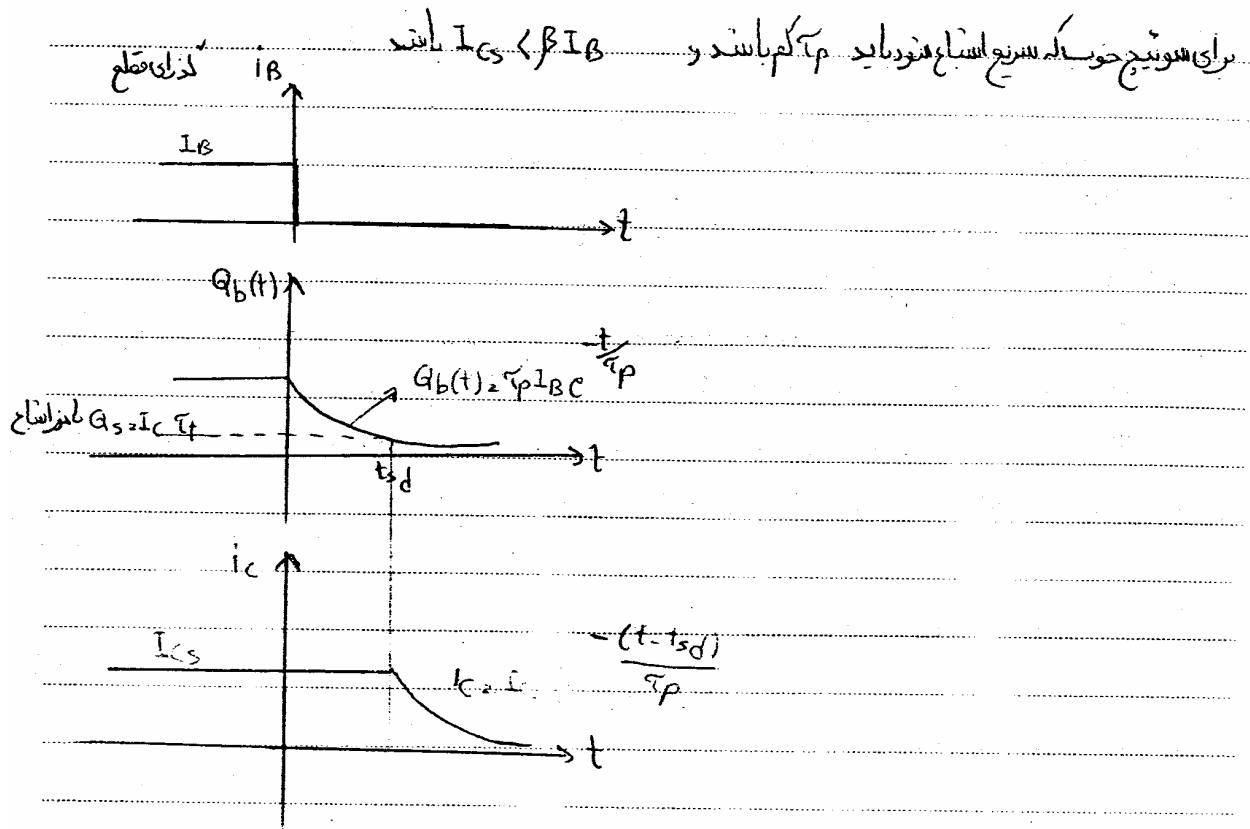 برای سوئیچ خوب که سریع اشباع شود باید τp کم باشد و I_Cs < β I_B باشد
گذرای قطع
iB
IB
t
Qb(t)
Qb(t) = τp IB e^(-t/τp)
Qs = Ic τt
t
tsd
ic
ICs
ic = I e^(-(t - tsd)/τp)
t